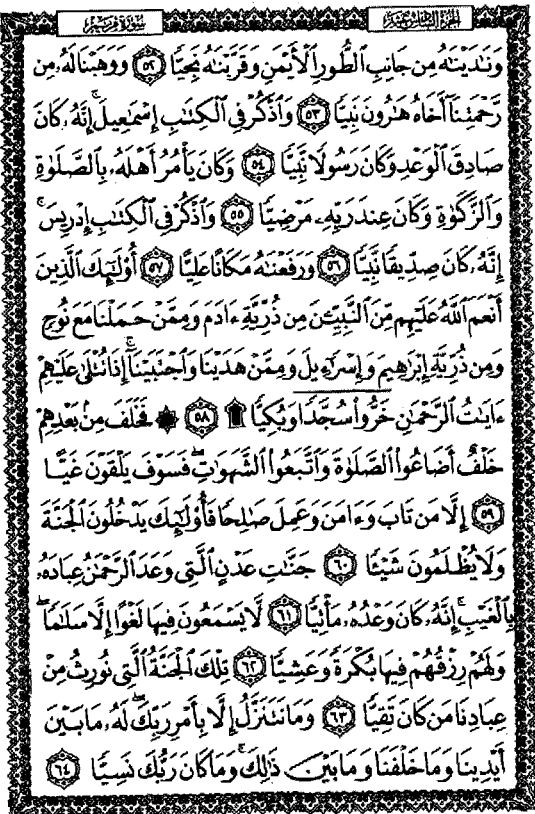 سورة مريم الجزء السادس عشر
وَنَٰدَيْنَٰهُ مِن جَانِبِ ٱلطُّورِ ٱلْأَيْمَنِ وَقَرَّبْنَٰهُ نَجِيًّا ٥٢ وَوَهَبْنَا لَهُۥ مِن
رَّحْمَتِنَآ أَخَاهُ هَٰرُونَ نَبِيًّا ٥٣ وَٱذْكُرْ فِى ٱلْكِتَٰبِ إِسْمَٰعِيلَ ۚ إِنَّهُۥ كَانَ
صَادِقَ ٱلْوَعْدِ وَكَانَ رَسُولًا نَّبِيًّا ٥٤ وَكَانَ يَأْمُرُ أَهْلَهُۥ بِٱلصَّلَوٰةِ
وَٱلزَّكَوٰةِ وَكَانَ عِندَ رَبِّهِۦ مَرْضِيًّا ٥٥ وَٱذْكُرْ فِى ٱلْكِتَٰبِ إِدْرِيسَ ۚ
إِنَّهُۥ كَانَ صِدِّيقًا نَّبِيًّا ٥٦ وَرَفَعْنَٰهُ مَكَانًا عَلِيًّا ٥٧ أُو۟لَٰٓئِكَ ٱلَّذِينَ
أَنْعَمَ ٱللَّهُ عَلَيْهِم مِّنَ ٱلنَّبِيِّـۧنَ مِن ذُرِّيَّةِ ءَادَمَ وَمِمَّنْ حَمَلْنَا مَعَ نُوحٍ
وَمِن ذُرِّيَّةِ إِبْرَٰهِيمَ وَإِسْرَٰٓءِيلَ وَمِمَّنْ هَدَيْنَا وَٱجْتَبَيْنَآ ۚ إِذَا تُتْلَىٰ عَلَيْهِمْ
ءَايَٰتُ ٱلرَّحْمَٰنِ خَرُّوا۟ سُجَّدًا وَبُكِيًّا ۩ ٥٨ ۞ فَخَلَفَ مِنۢ بَعْدِهِمْ
خَلْفٌ أَضَاعُوا۟ ٱلصَّلَوٰةَ وَٱتَّبَعُوا۟ ٱلشَّهَوَٰتِ ۖ فَسَوْفَ يَلْقَوْنَ غَيًّا
٥٩ إِلَّا مَن تَابَ وَءَامَنَ وَعَمِلَ صَٰلِحًا فَأُو۟لَٰٓئِكَ يَدْخُلُونَ ٱلْجَنَّةَ
وَلَا يُظْلَمُونَ شَيْـًٔا ٦٠ جَنَّٰتِ عَدْنٍ ٱلَّتِى وَعَدَ ٱلرَّحْمَٰنُ عِبَادَهُۥ
بِٱلْغَيْبِ ۚ إِنَّهُۥ كَانَ وَعْدُهُۥ مَأْتِيًّا ٦١ لَّا يَسْمَعُونَ فِيهَا لَغْوًا إِلَّا سَلَٰمًا ۖ
وَلَهُمْ رِزْقُهُمْ فِيهَا بُكْرَةً وَعَشِيًّا ٦٢ تِلْكَ ٱلْجَنَّةُ ٱلَّتِى نُورِثُ مِنْ
عِبَادِنَا مَن كَانَ تَقِيًّا ٦٣ وَمَا نَتَنَزَّلُ إِلَّا بِأَمْرِ رَبِّكَ ۖ لَهُۥ مَا بَيْنَ
أَيْدِينَا وَمَا خَلْفَنَا وَمَا بَيْنَ ذَٰلِكَ ۚ وَمَا كَانَ رَبُّكَ نَسِيًّا ٦٤